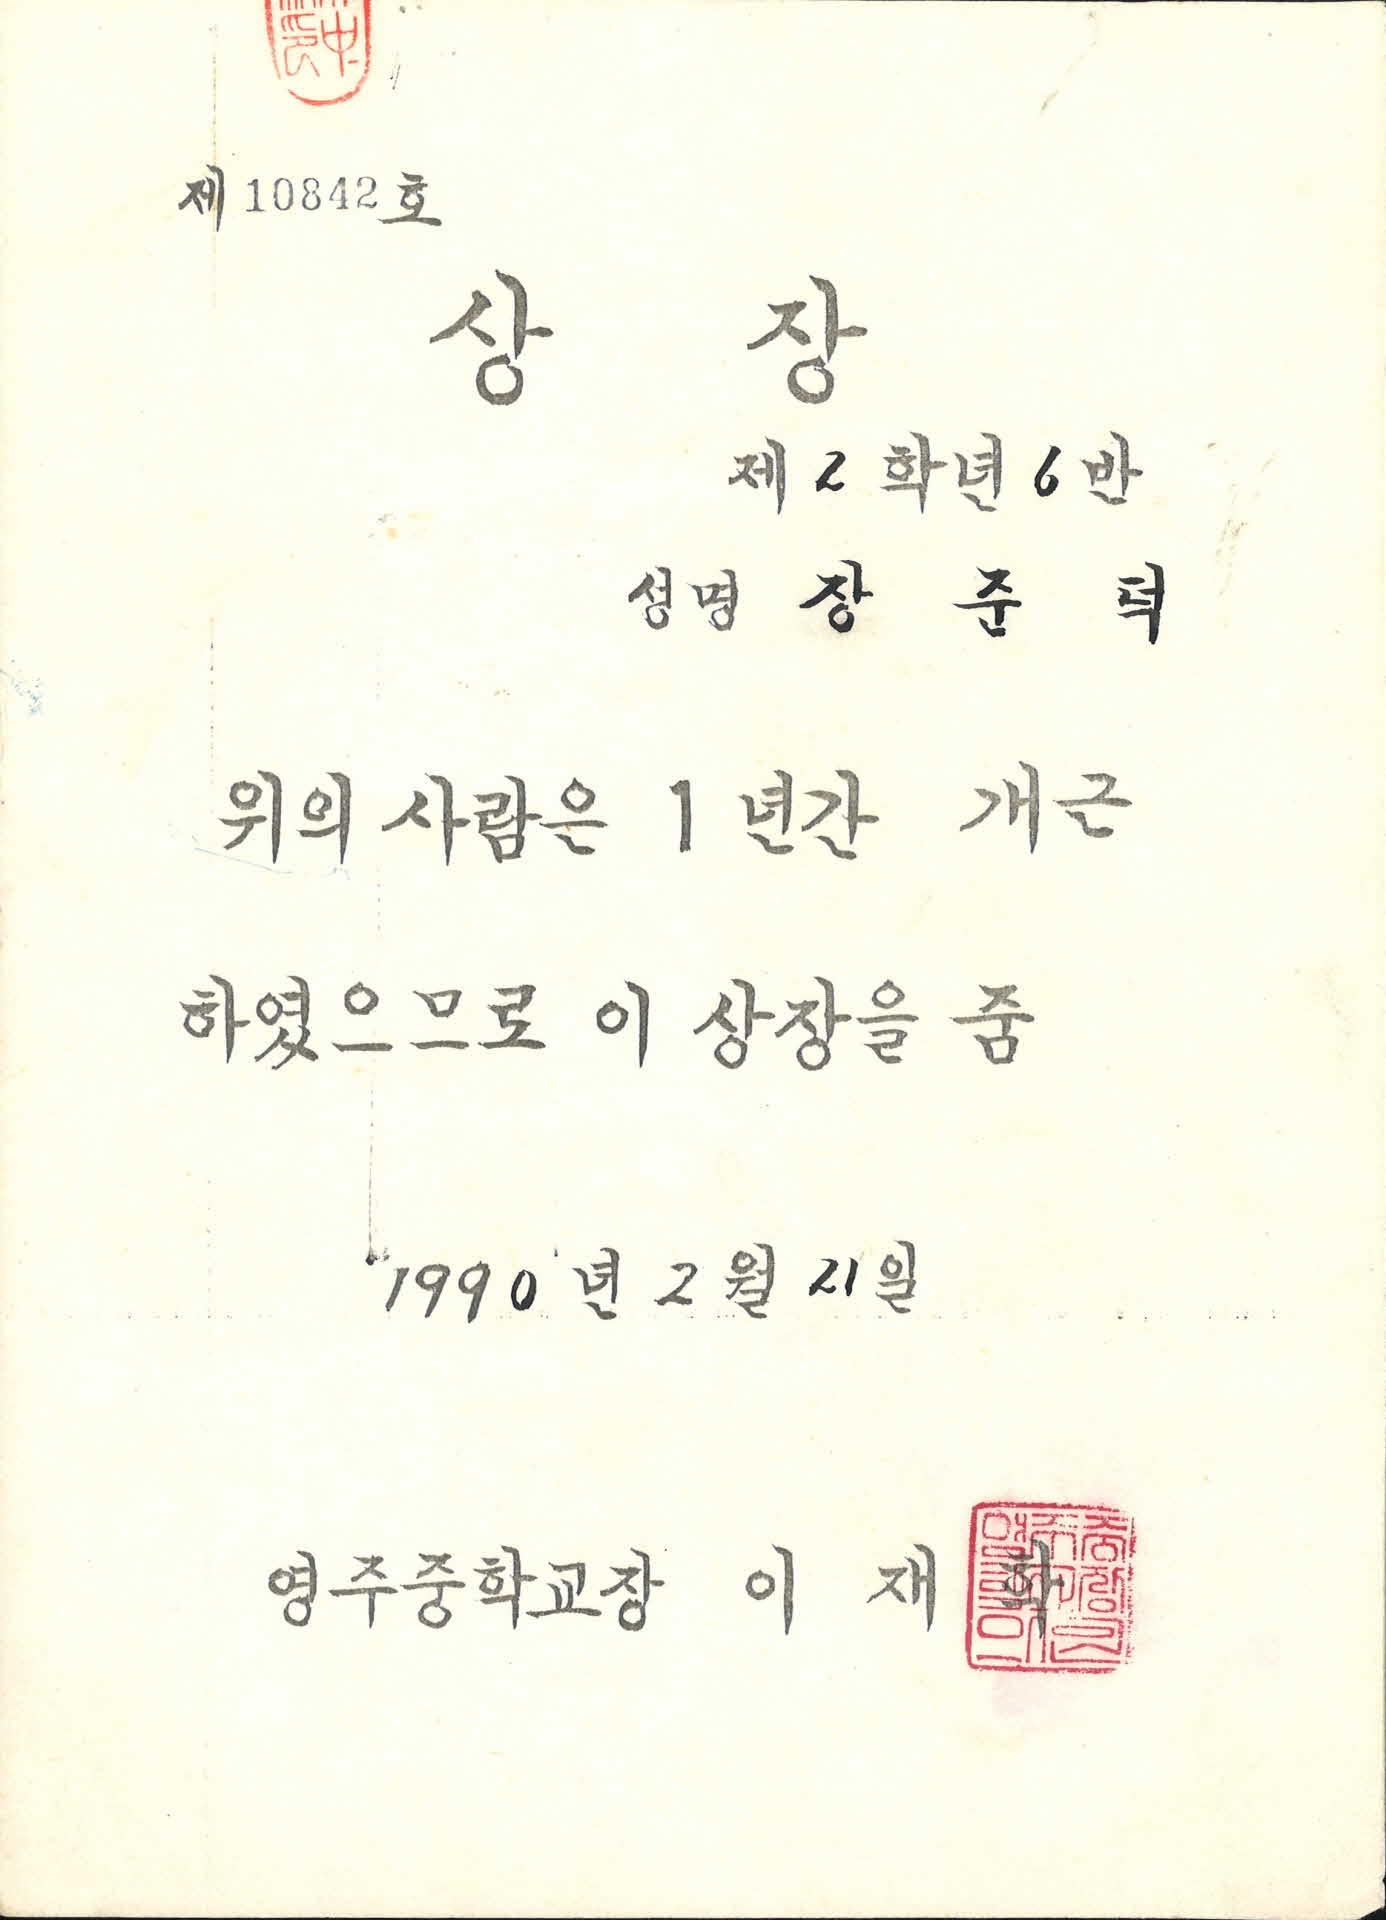 제 10842 호
상 장
제 2 학년 6 반
성명 장 준 덕
위의 사람은 1 년간 개근
하였으므로 이 상장을 줌
1990 년 2 월 21 일
영주중학교장 이 재 학